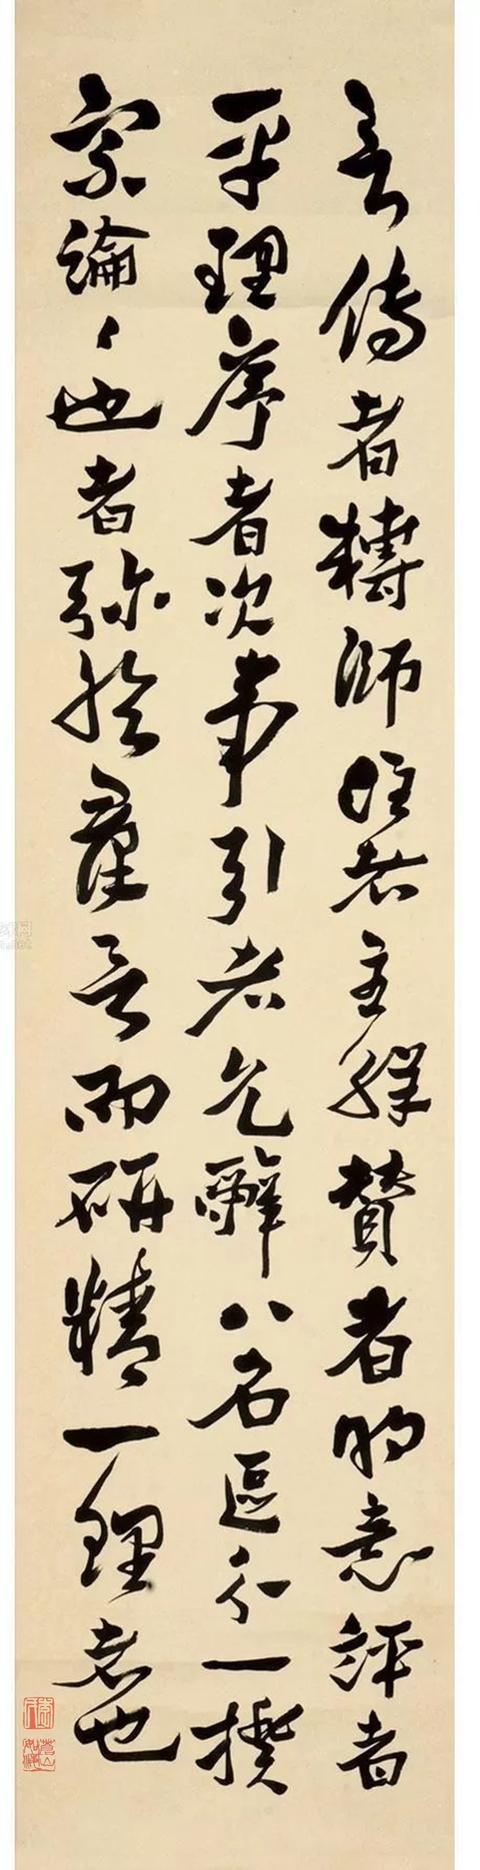 言傳者轉師注者主解贊者明意評者
平理序者次事引者允辭八名區分一揆
宗論〻也者弥於群言而研精一理者也